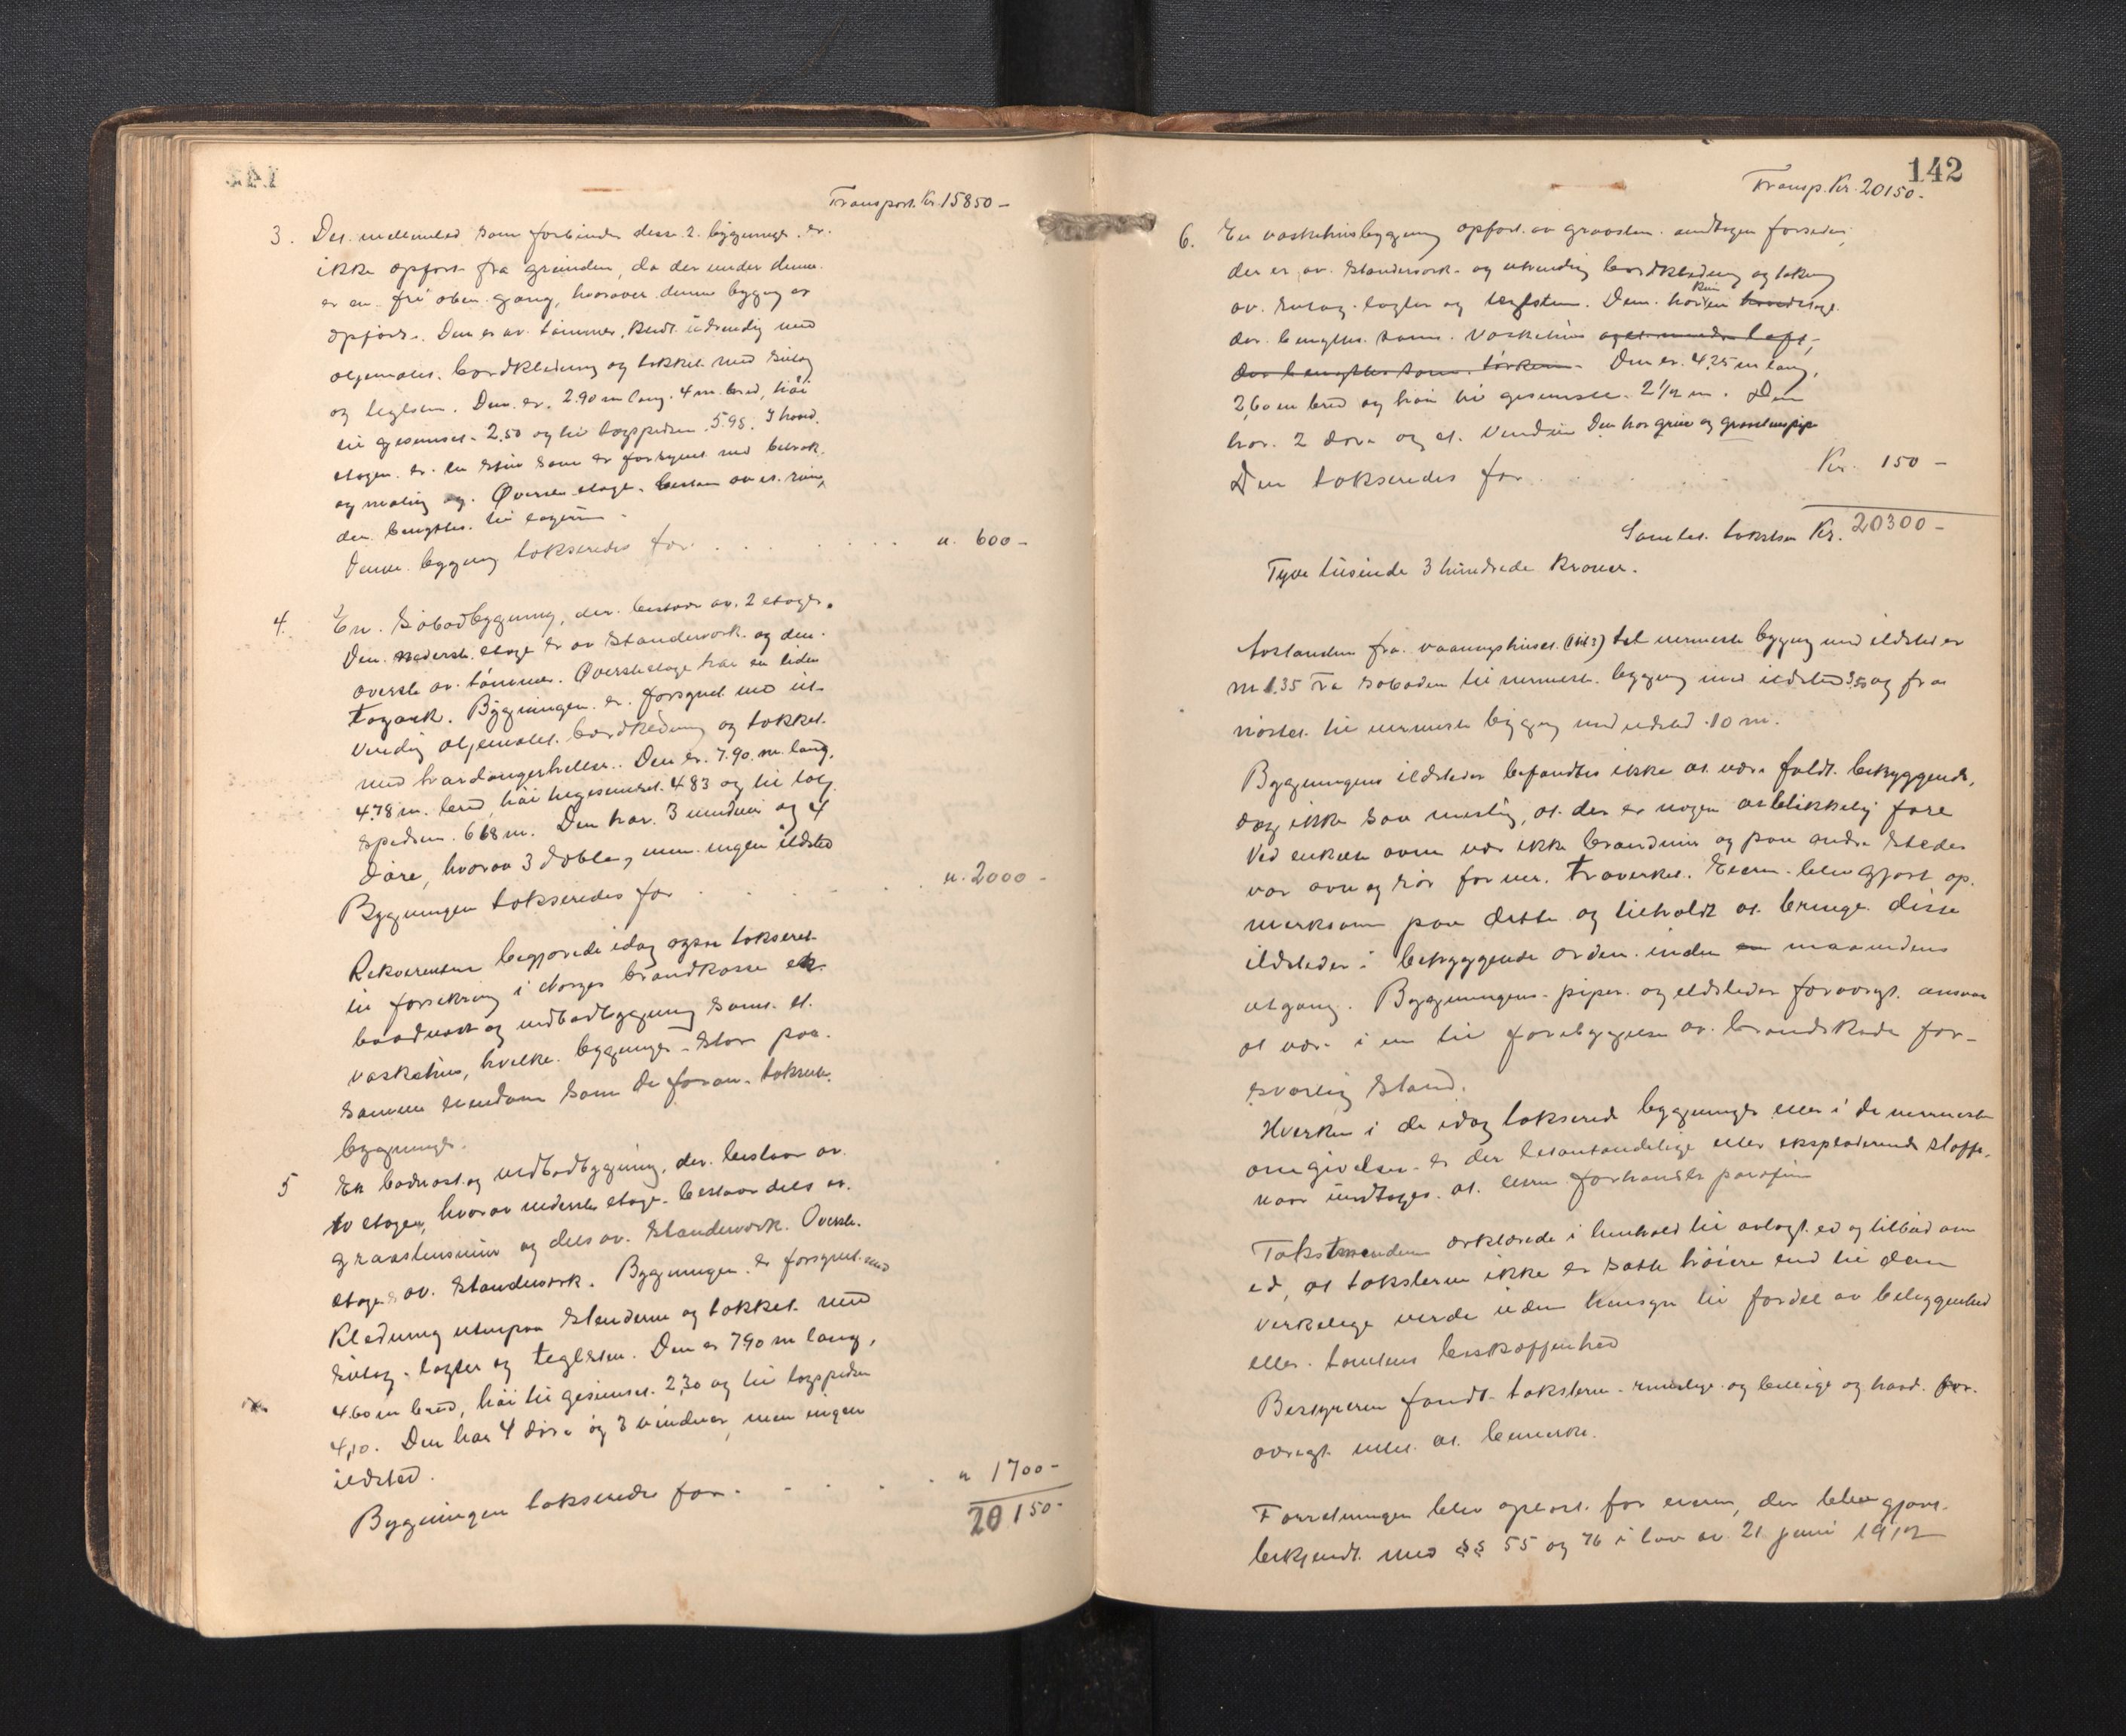 Transport. Kr. 15850 -
3. Det mellembed som forbinder disse 2 bygninger er
ikke opfort fra grunden, da der under denne
er en fri oben gang, hvorover denne bygning er
opfort. Den er av tømmer, kledt utvendig med
oljemalet bordkledning og tekket med sutag
og teglsten. Den er 2.90 m lang. 4 m. bred, høi
til gesimset 2.50 og til tagspidsen 5.95. I hoved
etagen er en stue som er forsynet med betræk
og maling og. Øverste etage bestaar av et rum,
der benyttes til lagerrum
Denne bygning takseredes for . . . . . . . . " 600 -
4. En Søbodbygning, der bestaar av 2 etager.
Den nederste etage er av standerværk og den
øverste av tømmer. Øverste etage har en liden
tagark. Bygningen er forsynet med ut-
vendig oljemalet bordkledning og tekket
med hardangerheller. Den er 7.90 m. lang,
4.78 m. bred, høi til gesimset 4.83 og til tag-
spidsen 6.68 m. Den har 3 vinduer og 4
døre, hvorav 3 doble, men ingen ildsted
Bygningen takseredes for . . . . . " 2000 -
Rekvirenten begjærede idag ogsaa takseret
til forsikring i Norges brandkasse et
baadnøst og vedbodbygning samt et
vaskehus, hvilke bygninger staar paa
samme eiendom som de foran takserte
bygninger.
5 En badnøst og vedbodbygning, der bestaar av
to etager, hvorav nederste etage bestaar dels av
graastensmur og dels av standerværk. Øverste
etage av standerværk. Bygningen er forsynet med
kledning utenpaa stenderne og tekket med
sutag, lægter og teglsten. Den er 7.90 m lang,
4.60 m bred, høi til gesimset 2,30 og til tagspidsen
4,10. Den har 4 døre og 3 vinduer, men ingen
ildsted.
Bygningen takseredes for . . . . . " 1700 -
20150 -
142
Transp. Kr. 20150 -
6. En vaskehusbygning opfort av graasten undtagen forsiden,
der er av standerværk og utvendig bordkledning og tekning
av sutag lægter og teglsten. Den har en rum hovedetage
der benyttes som vaskehus og et mindre loft,
der benyttes som tørkerum. Den er 4,25 m lang,
2,60 m bred og høi til gesimset 2 1/2 m. Den
har 2 døre og et vindu Den har grue og graastenspipe
Den takseredes for . . . . . Kr. 150 -
Samlet takstsum Kr. 20300 -
Tyve tusinde 3 hundrede Kroner.
Avstanden fra vaaningshuset (№ 3) til nermeste bygning med ildsted er
m 1.35 Fra søboden til nermeste bygning med ildsted 3,50 og fra
nøstet til nermeste bygning med ildsted 10 m.
Bygningens ildsteder befandtes ikke at være fuldt betryggende,
dog ikke saa mislig, at der er nogen øieblikkelig fare
Ved enkelte ovne var ikke brandmur og paa andre steder
var ovn og rør for nær traverket. Eieren blev gjort op-
merksom paa dette og tilholdt at bringe disse
ildsteder i betryggende orden inden en maaneds
utgang. Bygningens piper og ildsteder forøvrigt ansaaes
at være i en til forebyggelse av brandskade for-
svarlig stand.
Hverken i de idag takserede bygninger eller i de nermeste
omgivelser er der letantændelige eller eksploderende stoffe,
naar undtages at eieren forhandler parafin
Takstmendene erklærede i henhold til avlagt ed og tilbud om
ed, at taksterne ikke er satte høiere end til den
virkelige verdi uden hensyn til fordel av beliggenhed
eller tomtens beskaffenhed
Bestyreren fandt taksterne rimelige og billige og havde for-
øvrigt intet at bemerke.
Forretningen blev oplæst for eieren, der blev gjort
bekjendt med §§ 55 og 76 i lov av 21 juni 1912